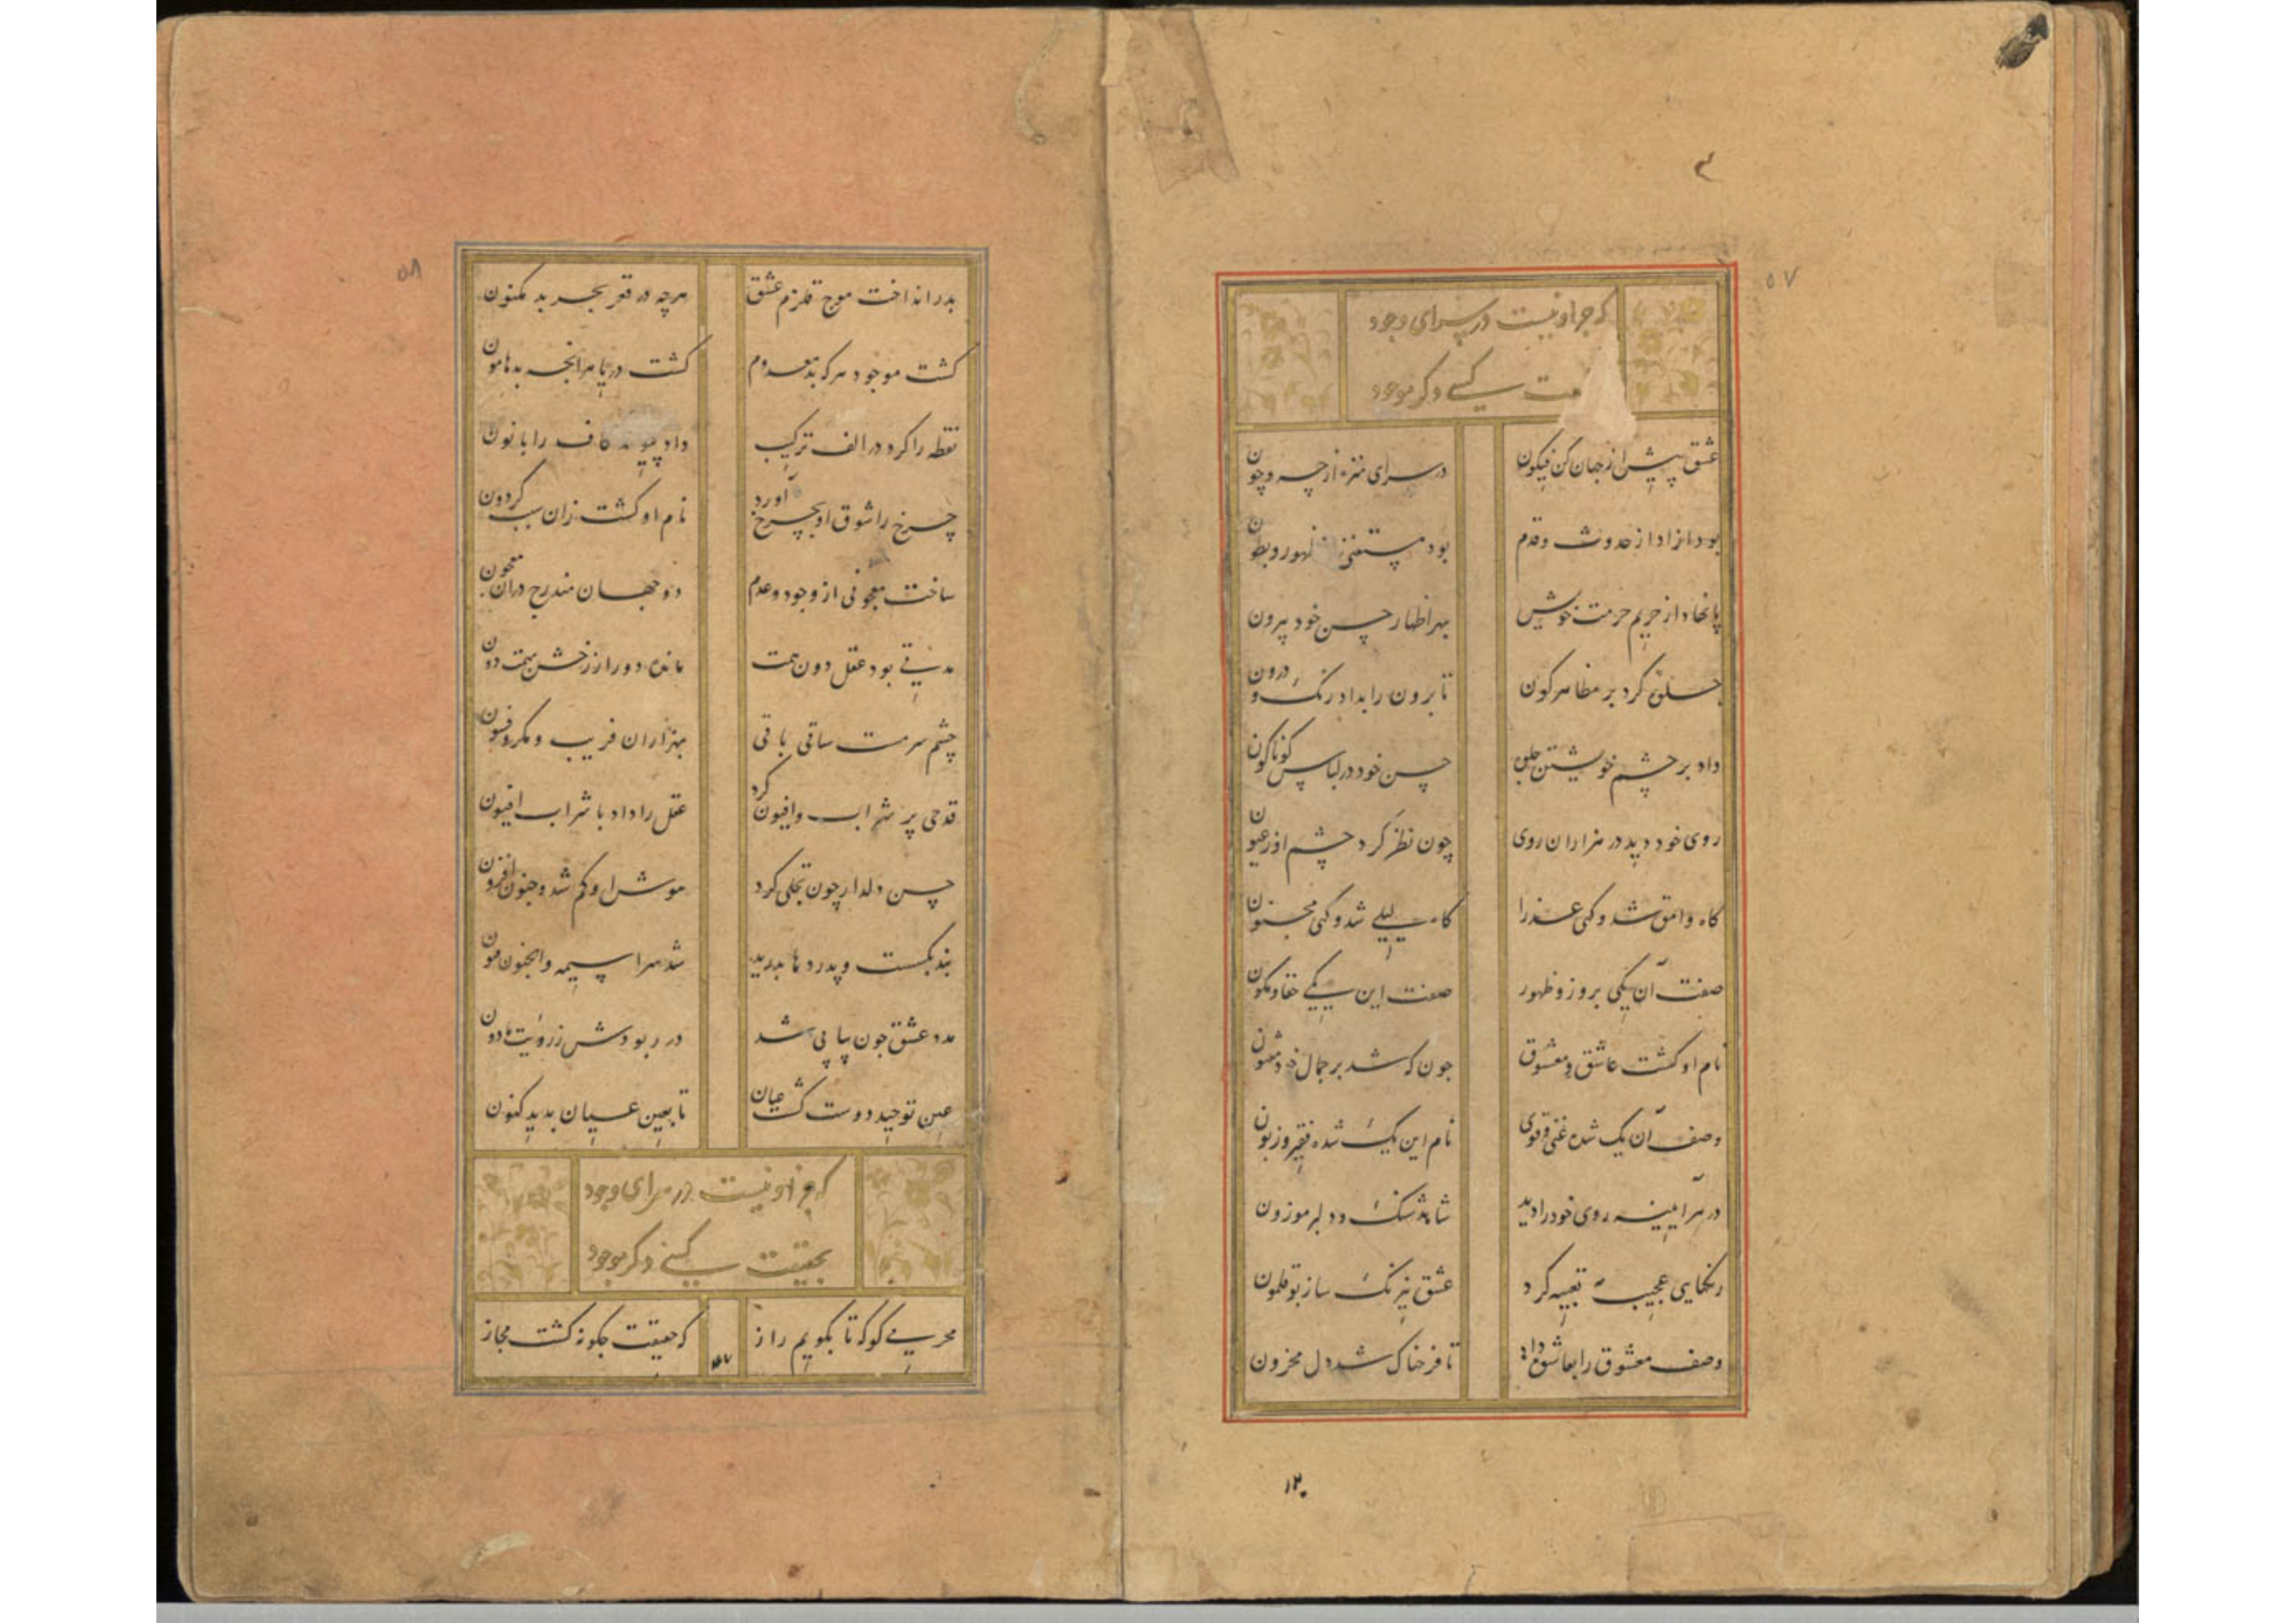 ۳
۵۷
که جز او نیست در سرای وجود
ت کسی دگر موجود
عشق پیش از جهان کن فیکون در سرای منزه از چه و چون
بود ازاد از حدوث و قدم بود مستغنی از ظهور و بطون
پا نهاد از حریم حرمت خویش بهر اظهار حسن خود بیرون
جلوه کرد بر مظاهر کون تا برون را بداد رنک درون
داد بر چشم خویشتن جلوه حسن خود در لباس کوناکون
روی خود دید در هزاران روی چون نظر کرد چشم او ز عیون
کاه وامق شد و کهی عذرا کاه لیلی شد و کهی مجنون
صفت آن یکی بروز و ظهور صفت این یکی خفا و مکون
نام او کشت عاشق و معشوق چون که شد بر جمال خود مفتون
وصف آن یک شده غنی و قوی نام این یک شده فقیر و زبون
در هر آیینه روی خود را دید شاهد شنک و دلبر موزون
رنکهایی عجیب تعبیه کرد عشق نیرنک ساز بوقلمون
وصف معشوق را بعاشق داد تا فرحناک شد دل محزون
۱۲۰
۵۸
بدر انداخت موج قلزم عشق هرچه در قعر بحر بد مکنون
کشت موجود هر که بد معدوم کشت دریا هر انچه بد هامون
نقطه را کرد در الف ترکیب داد پیوند کاف را با نون
چرخ را شوق او بچرخ آورد نام او کشت زان سبب کردون
ساخت معجونی از وجود و عدم دو جهان مندرج در ان معجون
مدتی بود عقل دون همت مانده دور از رخش بهمت دون
چشم سرمست ساقی باقی بهزاران فریب و مکر و فسون
قدحی پر شراب و افیون کرد عقل را داد با شراب افیون
حسن دلدار چون تجلی کرد هوش او کم شد و جنون افزون
بند بکسست و پردها بدرید شد سراسیمه والجنون فنون
مدد عشق چون پیاپی شد در ربودش ز رؤیت مادون
عین توحید دوست کشت عیان تا بعین عیان بدید کنون
که جز او نیست در سرای وجود
بحقیقت کسی دکر موجود
محرمی کو که تا بکویم راز که حقیقت چکونه کشت مجاز